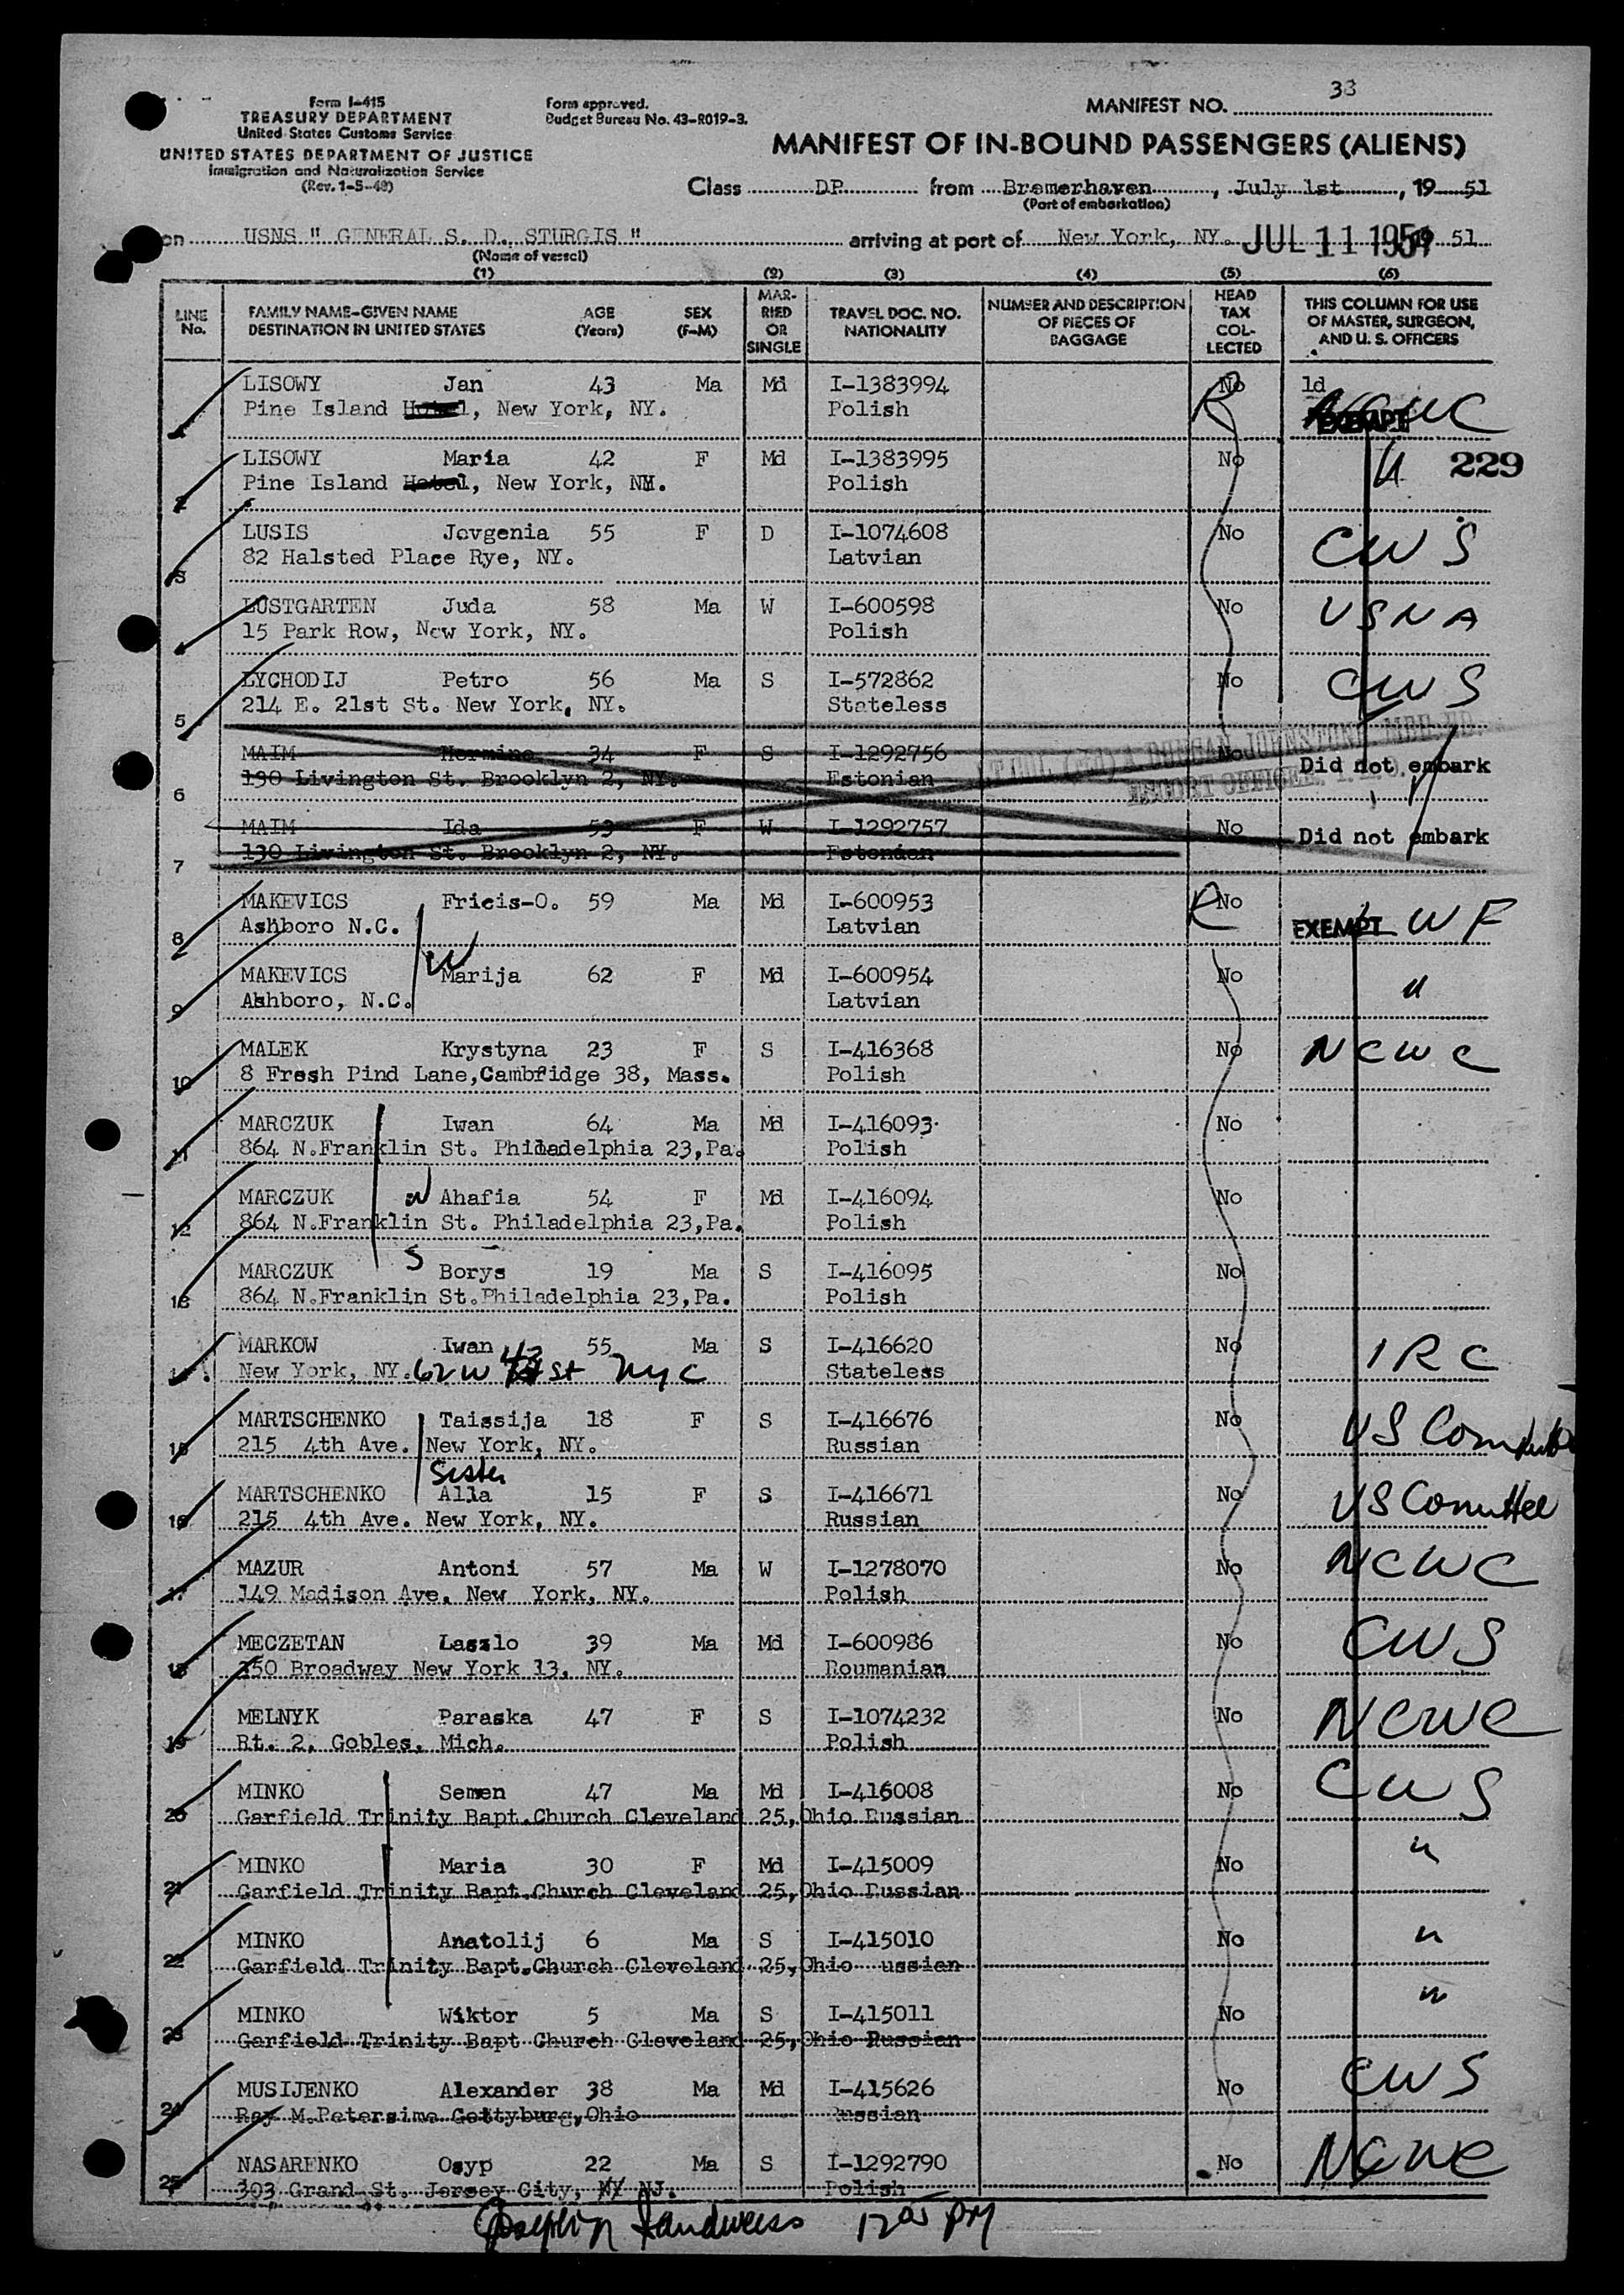 33
Form I-415
TREASURY DEPARTMENT
United States Customs Service
UNITED STATES DEPARTMENT OF JUSTICE
Immigration and Naturalization Service
(Rev. 1-5-49)
Form approved.
Budget Bureau No. 43-R019-3.
MANIFEST NO.
MANIFEST OF IN-BOUND PASSENGERS (ALIENS)
Class DP from Bremerhaven, July 1st, 19 51
(Port of embarkation)
on USNS " GENERAL S. D. STURGIS " arriving at port of New York, NY. JUL 11 1951 51
(Name of vessel)
(1) (2) (3) (4) (5) (6)
LINE No. FAMILY NAME-GIVEN NAME DESTINATION IN UNITED STATES AGE (Years) SEX (F-M) MARRIED OR SINGLE TRAVEL DOC. NO. NATIONALITY NUMBER AND DESCRIPTION OF PIECES OF BAGGAGE HEAD TAX COLLECTED THIS COLUMN FOR USE OF MASTER, SURGEON, AND U. S. OFFICERS
1 LISOWY Jan 43 Ma Md I-1383994 No 1d
Pine Island Hotel, New York, NY. Polish R EXEMPT NCWC
2 LISOWY Maria 42 F Md I-1383995 No " 229
Pine Island Hotel, New York, NY. Polish
3 LUSIS Jevgenia 55 F D I-1074608 No CWS
82 Halsted Place Rye, NY. Latvian
4 LUSTGARTEN Juda 58 Ma W I-600598 No USNA
15 Park Row, New York, NY. Polish
5 LYCHODIJ Petro 56 Ma S I-572862 No CWS
214 E. 21st St. New York, NY. Stateless
6 MAIM Hermine 34 F S I-1292756 No Did not embark
130 Livington St. Brooklyn 2, NY. Estonian
7 MAIM Ida 53 F W I-1292757 No Did not embark
130 Livington St. Brooklyn 2, NY. Estonian
8 MAKEVICS Fricis-O. 59 Ma Md I-600953 R No EXEMPT LWF
Ashboro N.C. Latvian
9 MAKEVICS W Marija 62 F Md I-600954 No "
Ashboro, N.C. Latvian
10 MALEK Krystyna 23 F S I-416368 No NCWC
8 Fresh Pind Lane,Cambridge 38, Mass. Polish
11 MARCZUK Iwan 64 Ma Md I-416093 No
864 N.Franklin St. Philadelphia 23,Pa. Polish
12 MARCZUK W Ahafia 54 F Md I-416094 No
864 N.Franklin St. Philadelphia 23,Pa. Polish
13 MARCZUK S Borys 19 Ma S I-416095 No
864 N.Franklin St.Philadelphia 23,Pa. Polish
14 MARKOW Iwan 55 Ma S I-416620 No IRC
New York, NY. 62 W 43 St NYC Stateless
15 MARTSCHENKO Taissija 18 F S I-416676 No US Committee
215 4th Ave. New York, NY. Russian
Sister
16 MARTSCHENKO Alla 15 F S I-416671 No US Committee
215 4th Ave. New York, NY. Russian
17 MAZUR Antoni 57 Ma W I-1278070 No NCWC
149 Madison Ave. New York, NY. Polish
18 MECZETAN Laszlo 39 Ma Md I-600986 No CWS
350 Broadway New York 13, NY. Roumanian
19 MELNYK Paraska 47 F S I-1074232 No NCWC
Rt. 2, Gobles, Mich. Polish
20 MINKO Semen 47 Ma Md I-416008 No CWS
Garfield Trinity Bapt.Church Cleveland 25,Ohio Russian
21 MINKO Maria 30 F Md I-415009 No "
Garfield Trinity Bapt.Church Cleveland 25,Ohio Russian
22 MINKO Anatolij 6 Ma S I-415010 No "
Garfield Trinity Bapt.Church Cleveland 25,Ohio ussian
23 MINKO Wiktor 5 Ma S I-415011 No "
Garfield Trinity Bapt Church Cleveland 25,Ohio Russian
24 MUSIJENKO Alexander 38 Ma Md I-415626 No CWS
Roy M.Petersime Gettyburg,Ohio Russian
25 NASARENKO Osyp 22 Ma S I-1292790 No NCWC
303 Grand St. Jersey City, NJ. Polish
12 05 PM